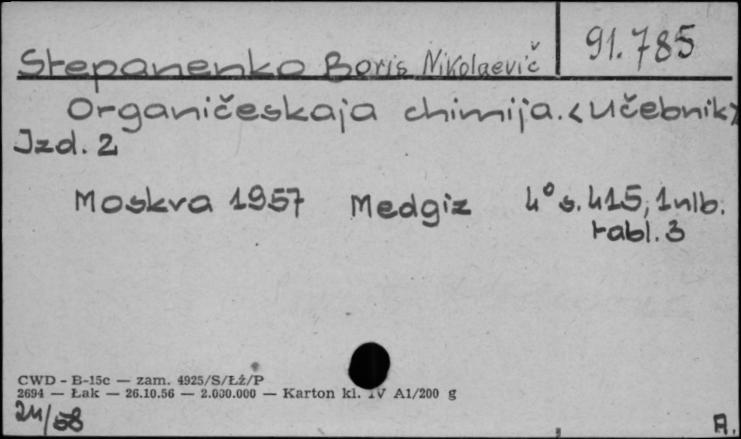 Stepanenko Boris Nikolaevič 91.785
Organičeskaja chimija. <Učebnik>
Izd. 2
Moskva 1957 Medgiz 4° s. 415, 1nlb.
tabl. 3
CWD - B-15c — zam. 4925/S/Łż/P
2694 — Łak — 26.10.56 — 2.000.000 — Karton kl. IV A1/200 g
/58
A.